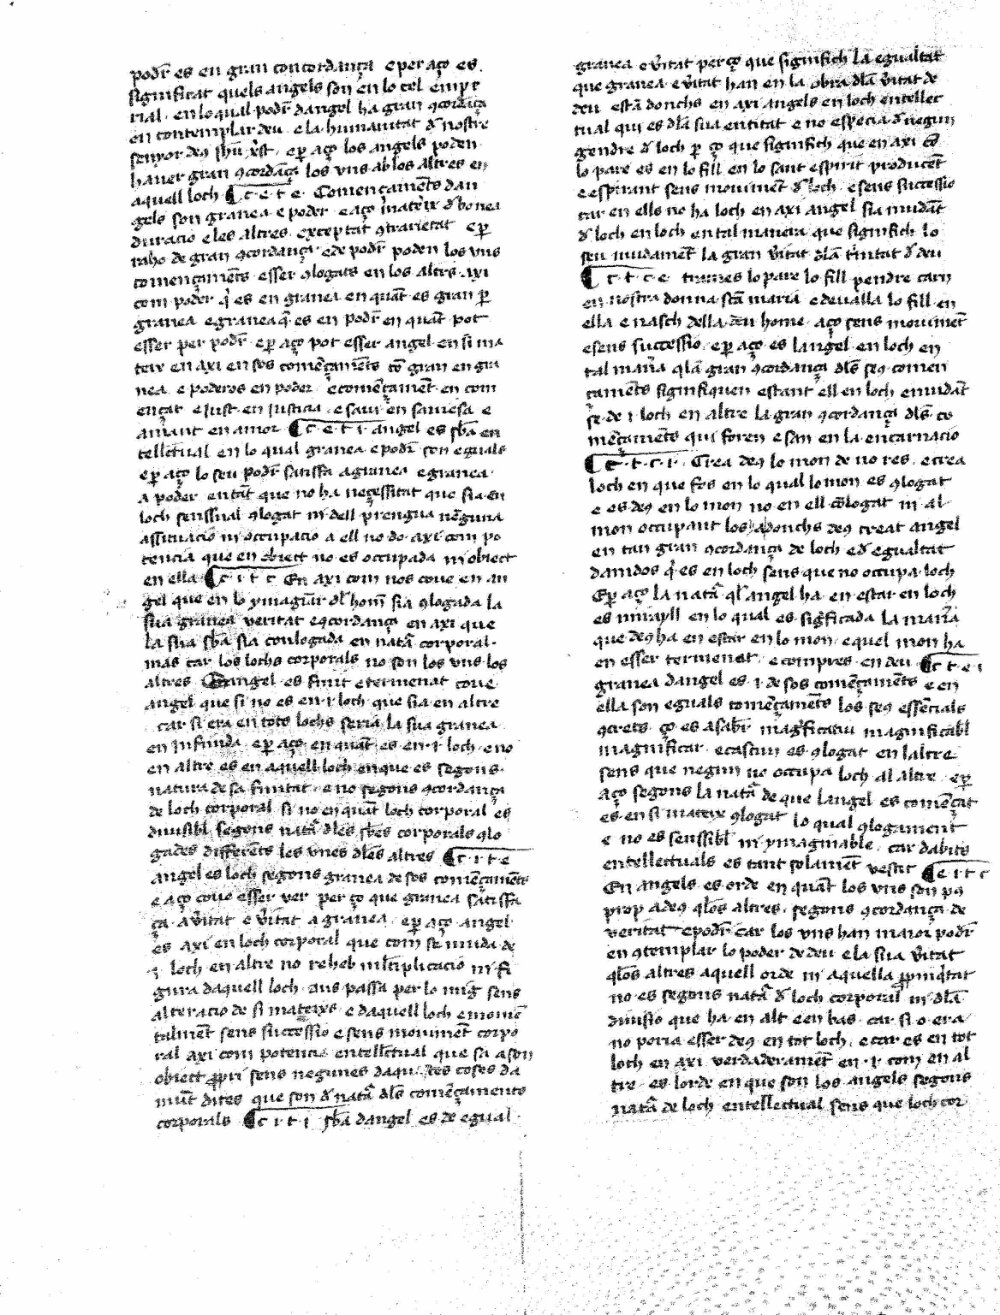 poder es en gran concordança e per aço es
significat quels angels son en lo cel empe
rial en lo qual poder dangel ha gran concordança
en contemplar deu e la humanitat de nostre
senyor deus jhu xst e per aço los angels poden
haver gran concordança los uns ab los altres en
aquell loch ¶ c·e·t·e· Començaments dan
gels son granea e poder e aço mateix de bonea
duracio e les altres exceptat contrarietat e per
raho de gran concordança e de poder poden los uns
començaments esser conlogats en los altres axi
com poder qui es en granea en quant es gran per
granea e granea que es en poder en quant pot
esser per poder e per aço pot esser angel en si ma
teix en axi en sos començaments com gran en gra
nea e poderos en poder e començament en com
ençat e just en justicia e savi en saviesa e
amant en amor ¶ c·e·t·i· angel es sba en
tellectual en lo qual granea e poder son eguals
e per aço lo seu poder satisfa a granea e granea
a poder en tant que no ha necessitat que sia en
loch senssual conlogat ni dell prengua neguna
assituacio ni occupacio a ell no do axi com po
tencia que en obiect no es occupada ni obiect
en ella ¶ c·i·t·c· En axi com nos cove en an
gel que en lo ymaginar del hom sia conlogada la
sua granea veritat e concordança en axi que
la sua sba sia conlogada en natura corporal
mas car los lochs corporals no son los uns los
altres E angel es finit e termenat cove
angel que si no es en ·i· loch que sia en altre
car si era en tots lochs seria la sua granea
en infinida e per aço en quant es en ·i· loch e no
en altre es en aquell loch en que es segons
natura de sa finitat e no segons concordança
de loch corporal si no en quant loch corporal es
divisibl segons natura de les sbes corporals conlo
gades differents les unes de les altres ¶ c·i·t·e
angel es loch segons granea de sos començaments
e aço cove esser ver per ço que granea satisfa
ça a veritat e veritat a granea e per aço angel
es axi en loch corporal que com se muda de
·i· loch en altre no reheb multiplicacio ni fi
gura daquell loch ans passa per lo mig sens
alteracio de si mateys e daquell loch e momen
talment sens successio e sens moviment corpo
ral axi com potencia entellectual que sa a son
obiect propri sens negunes daquestes coses da
munt dites que son de natura dels començaments
corporals ¶ c·i·t·i sba dangel es de egual
granea e veritat per ço que significh la egualtat
que granea e veritat han en la obra de la veritat de
deu esta donchs en axi angels en loch entellec
tual qui es de la sua entitat e no especia de negun
gendre de loch per ço que significh que en axi com
lo pare es en lo fill en lo sant espirit producent
e espirant sens moviment de loch e sens successio
car en ells no ha loch en axi angel sia mudant
de loch en loch en tal manera que significh lo
seu mudament la gran veritat de la trinitat de deu
¶ c·t·c·e trames lo pare lo fill pendre carn
en nostra donna sca maria e devalla lo fill en
ella e nasch della deu home aço sens moviment
e sens successio e per aço es langel en loch en
tal manera que la gran concordança dels seus comen
çaments signifiquen estant ell en loch e mudant
se de ·i· loch en altre la gran concordança dels co
mençaments qui foren e son en la encarnacio
¶ c·t·c·i· Crea deus lo mon de no res e crea
loch en que fos en lo qual lo mon es conlogat
e es deus en lo mon no en ell conlogat ni al
mon occupant loch donchs deus creat angel
en tan gran concordança de loch e de egualtat
damidos que es en loch sens que no occupa loch
E per aço la natura quel angel ha en estar en loch
es mirayll en lo qual es significada la manera
que deus ha en estar en lo mon e quel mon ha
en esser termenat e compres en deu ¶ c·t·e·i
granea dangel es ·i· de sos començaments e en
ella son eguals començaments los seus essencials
concrets ço es asaber magnificatiu magnificabl
magnificar e cascun es conlogat en laltre
sens que negun no occupa loch al altre e per
aço segons la natura de que langel es començat
es en si mateix conlogat lo qual conlogament
e no es senssibl ni ymaginable car dabits
entellectuals es tant solament vestit ¶ e·i·t·c
En angels es orde en quant los uns son pus
prop a deus quels altres segons concordança de
veritat e poder car los uns han maior poder
en contemplar lo poder de deu e la sua veritat
quels altres aquell orde ni aquella propinquitat
no es segons natura de loch corporal ni de la
divisio que ha en alt e en bas car si o era
no poria esser deus en tot loch e car es en tot
loch en axi verdaderament en ·i· com en al
tre es lorde en que son los angels segons
natura de loch entellectual sens que loch cor